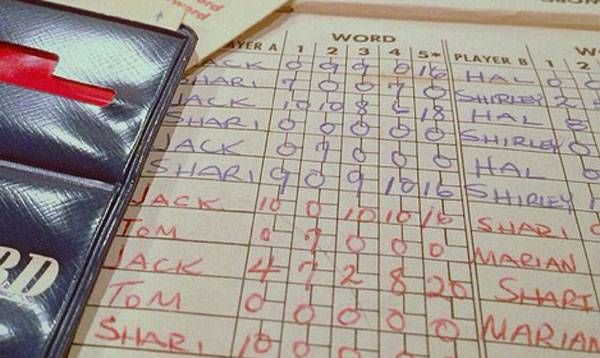 word
WORD
AYER A 1 2 3 4 5* PLAYER B 1 2
JACK 0 9 9 0 16 HAL 0
SHARI 7 0 0 7 0 SHIRLEY 2
JACK 10 10 8 6 18 HAL 8
SHARI 0 0 0 0 0 SHIRLEY 0
JACK 0 7 0 0 0 HAL 0
SHARI 9 0 9 10 16 SHIRLEY
JACK 10 0 10 10 16 SHARI
TOM 0 7 0 0 0 MARIAN
JACK 4 7 2 8 20 SHARI
TOM 0 0 0 0 0 MARIAN
SHARI 10 0
RD